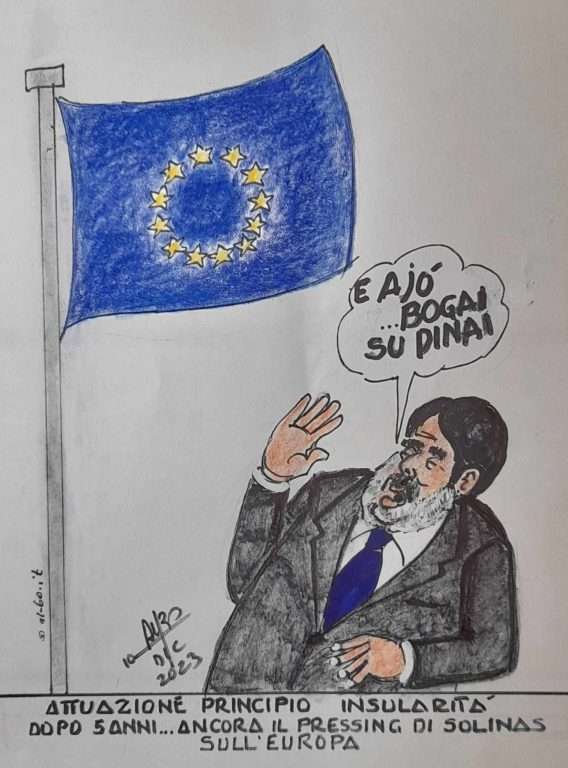 E AJÓ
...BOGAI
SU DINAI
DIC
2023
ATTUAZIONE PRINCIPIO INSULARITÀ
DOPO 5 ANNI... ANCORA IL PRESSING DI SOLINAS
SULL'EUROPA